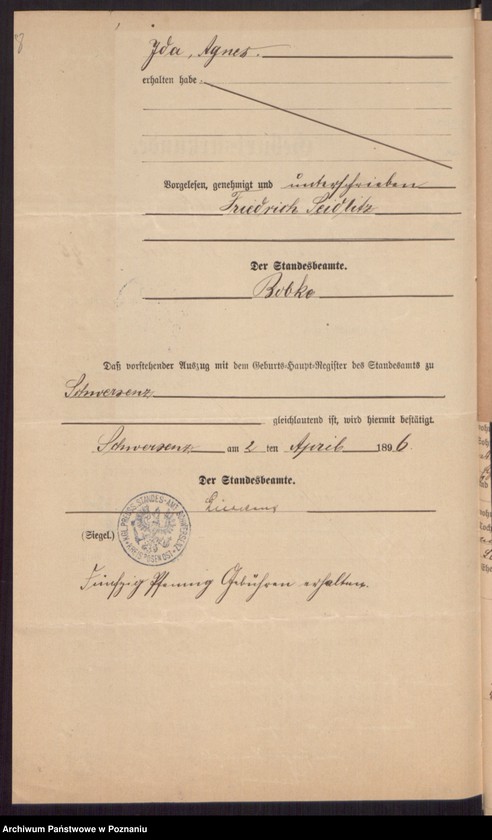 8
Ida, Agnes.
erhalten habe.
Vorgelesen, genehmigt und unterschrieben
Friedrich Seidlitz
Der Standesbeamte.
Bobke
Daß vorstehender Auszug mit dem Geburts-Haupt-Register des Standesamts zu
Schwersenz
gleichlautend ist, wird hiermit bestätigt.
Schwersenz am 2 ten April 1896.
Der Standesbeamte.
(Siegel.)
KÖN. PREUSS. STANDES-AMT SCHWERSENZ
KREIS POSEN OST
Fünfzig Pfennig Gebühren erhalten.
Archiwum Państwowe w Poznaniu